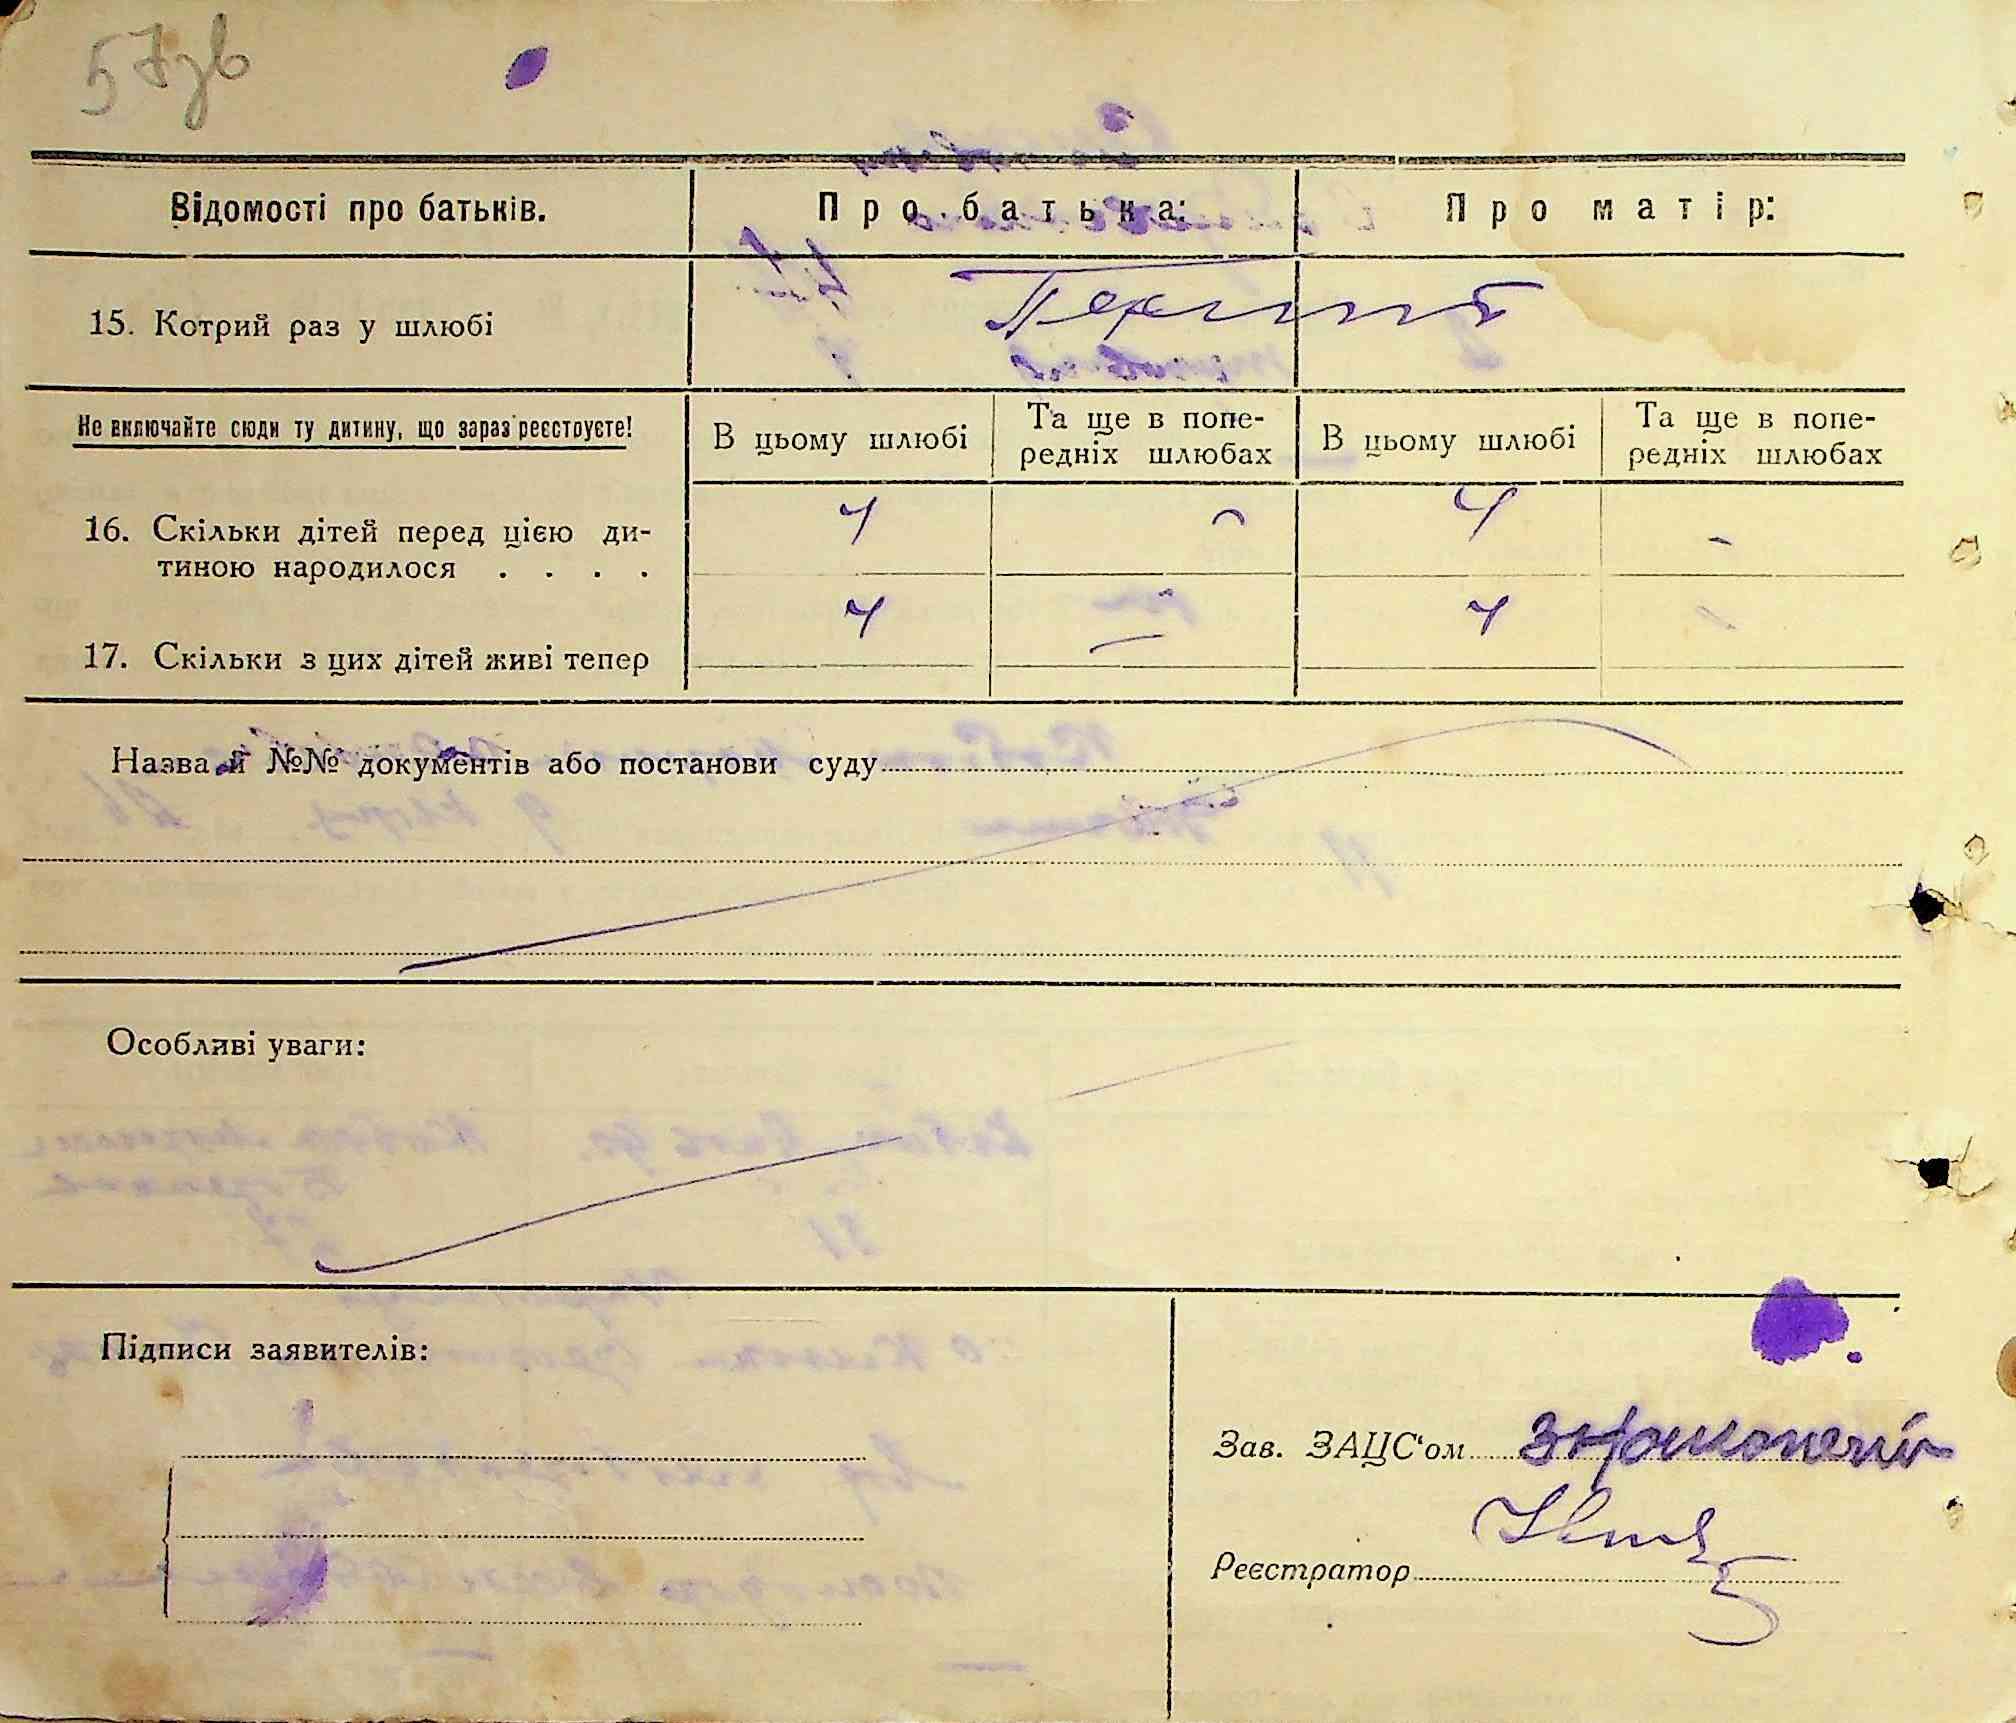 57зв
Відомості про батьків. Про батька: Про матір:
15. Котрий раз у шлюбі Перший
Не включайте сюди ту дитину, що зараз реєструєте! В цьому шлюбі Та ще в попе-редніх шлюбах В цьому шлюбі Та ще в попе-редніх шлюбах
16. Скільки дітей перед цією ди- 4 - 4 -
тиною народилося . . . .
17. Скільки з цих дітей живі тепер 4 - 4 -
Назва й №№ документів або постанови суду
Особливі уваги:
Підписи заявителів:
Зав. ЗАЦС'ом
Реєстратор